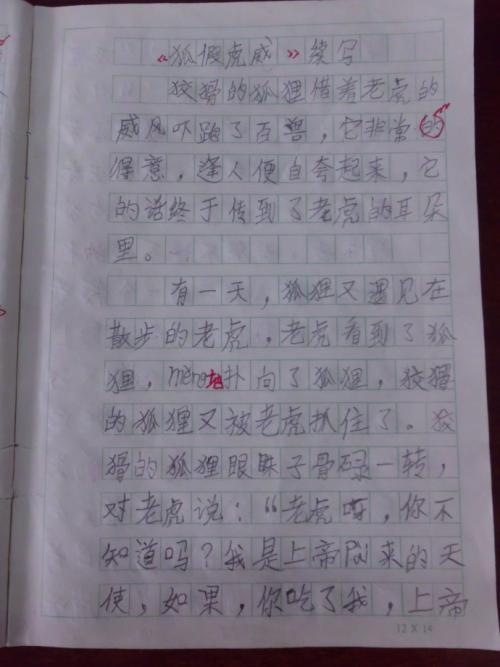 《狐假虎威》续写
狡猾的狐狸借着老虎的
威风吓跑了百兽，它非常的
得意，逢人便自夸起来，它
的话终于传到了老虎的耳朵
里。
有一天，狐狸又遇见在
散步的老虎，老虎看到了狐
狸，měng地扑向了狐狸，狡猾
的狐狸又被老虎抓住了。狡
猾的狐狸眼珠子骨碌一转，
对老虎说：“老虎呀，你不
知道吗？我是上帝派来的天
使，如果，你吃了我，上帝
12×14